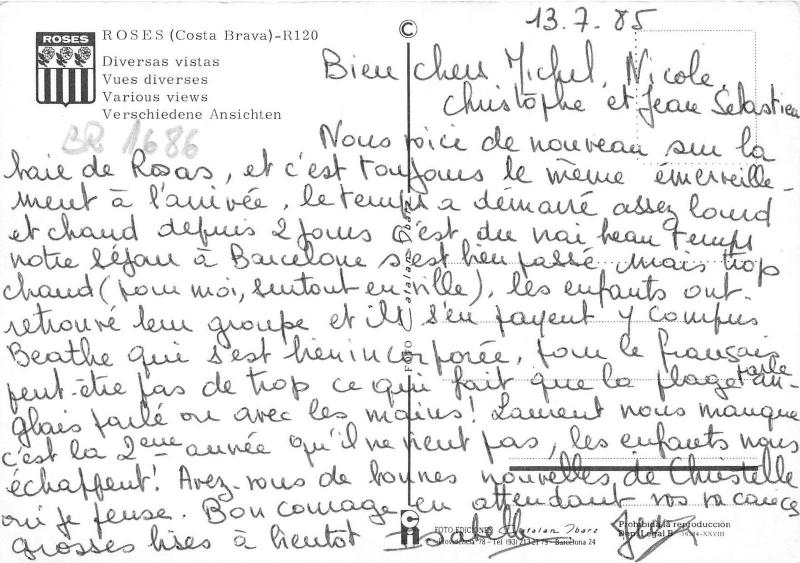 13.7.85
ROSES
ROSES (Costa Brava)-R120
Diversas vistas
Vues diverses
Various views
Verschiedene Ansichten
BR 1686
Bien chers Michel, Nicole,
Christophe et Jean Sébastien
Nous voici de nouveau sur la
baie de Rosas, et c'est toujours le même émerveille-
ment à l'arrivée, le temps a démarré assez lourd
et chaud depuis 2 jours c'est du vrai beau temps
notre séjour à Barcelone s'est bien passé mais trop
chaud (pour moi, surtout en ville), les enfants ont
retrouvé leur groupe et ils s'en payent y compris
Beathe qui s'est bien incorporée, pour le français
peut-être pas de trop ce qui fait que la plage parle an-
glais parlé ou avec les mains! Laurent nous manque
c'est la 2eme année qu'il ne vient pas, les enfants nous
échappent! Avez-vous de bonnes nouvelles de Christelle
oui je pense. Bon courage en attendant vos vacances
grosses bises à bientôt Isabelle
FOTO Catalan Ibarz
FOTO EDICIONES Catalan Ibarz
Tel (93) 213 21 79 - Barcelona 24
Prohibida la reproducción
Dep. Legal B.